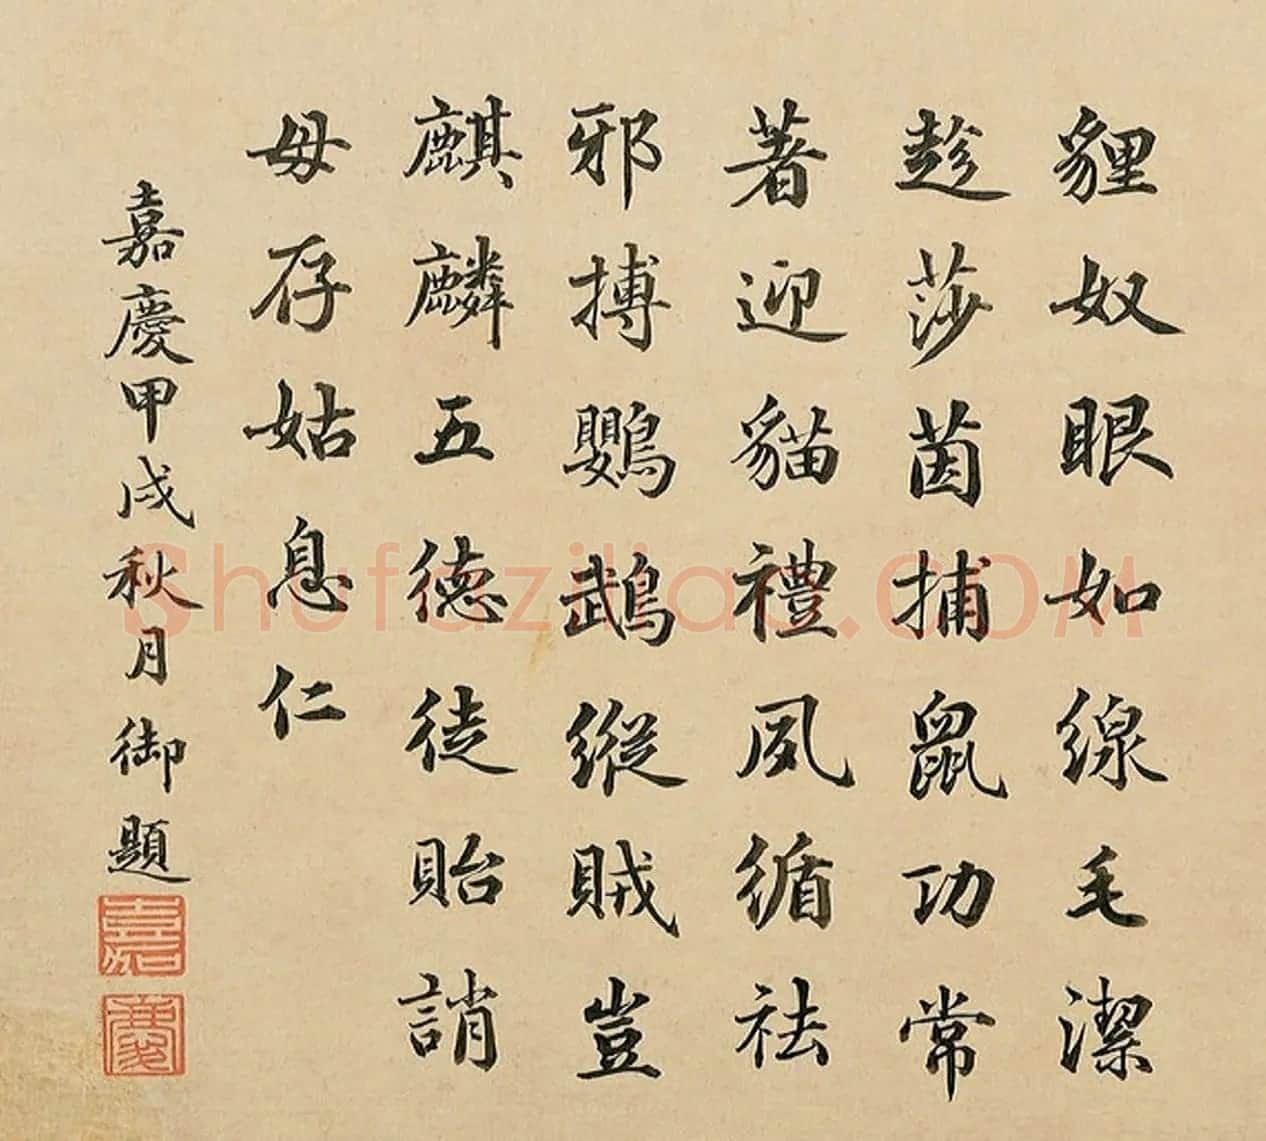 貍奴眼如線毛潔
趁莎茵捕鼠功常
著迎貓禮夙循祛
邪搏鸚鵡縱賊豈
麒麟五德徒貽誚
毋存姑息仁
嘉慶甲戌秋月御題
嘉
慶
Shufaziliao.COM